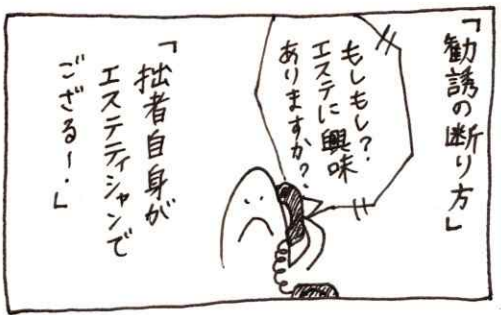 「勧誘の断り方」
もしもし？
エステに興味
ありますか？
「拙者自身が
エステティシャンで
ござるー。」